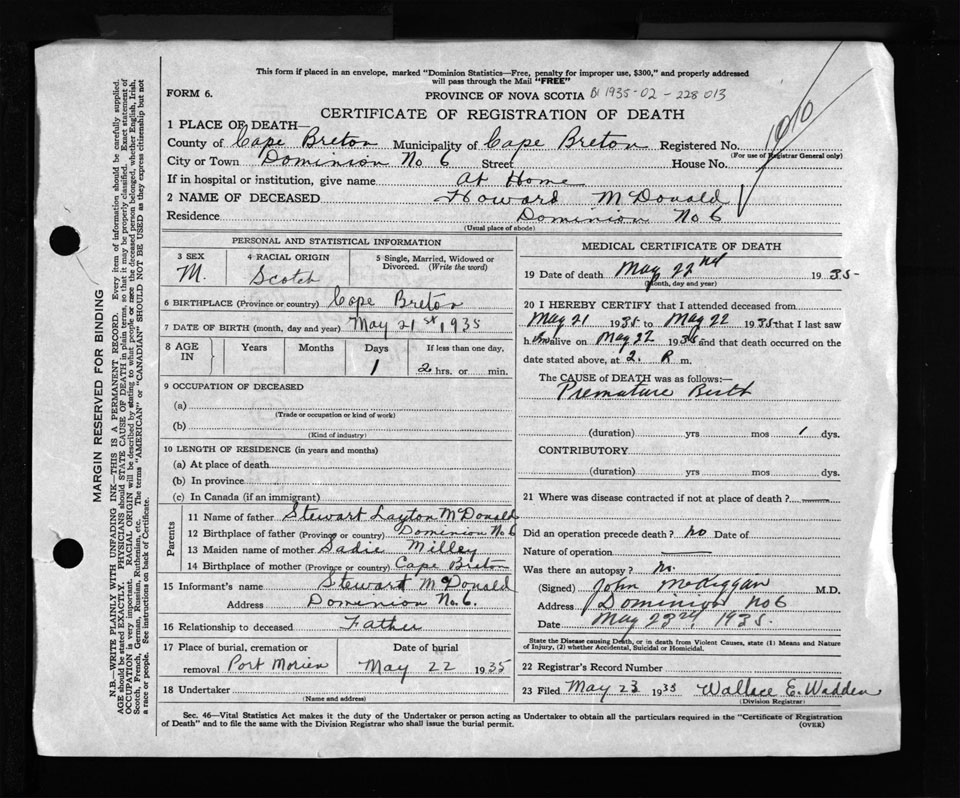 This form if placed in an envelope, marked "Dominion Statistics—Free, penalty for improper use, $300," and properly addressed
will pass through the Mail "FREE"
FORM 6. PROVINCE OF NOVA SCOTIA 1935-02-228013
CERTIFICATE OF REGISTRATION OF DEATH
1 PLACE OF DEATH—
County of Cape Breton Municipality of Cape Breton Registered No.
(For use of Registrar General only)
City or Town Dominion No 6 Street House No.
If in hospital or institution, give name At Home
2 NAME OF DECEASED Howard McDonald
Residence Dominion No 6
(Usual place of abode)
PERSONAL AND STATISTICAL INFORMATION
3 SEX 4 RACIAL ORIGIN 5 Single, Married, Widowed or
Divorced. (Write the word)
M. Scotch
6 BIRTHPLACE (Province or country) Cape Breton
7 DATE OF BIRTH (month, day and year) May 21st, 1935
8 AGE IN Years Months Days If less than one day,
1 2 hrs. or min.
9 OCCUPATION OF DECEASED
(a)
(Trade or occupation or kind of work)
(b)
(Kind of industry)
10 LENGTH OF RESIDENCE (in years and months)
(a) At place of death
(b) In province
(c) In Canada (if an immigrant)
Parents
11 Name of father Stewart Layton McDonald
12 Birthplace of father (Province or country) Dominion No 6
13 Maiden name of mother Sadie Milley
14 Birthplace of mother (Province or country) Cape Breton
15 Informant's name Stewart McDonald
Address Dominion No. 6.
16 Relationship to deceased Father
17 Place of burial, cremation or Date of burial
removal Port Morien May 22 1935
18 Undertaker
(Name and address)
MEDICAL CERTIFICATE OF DEATH
19 Date of death May 22nd 1935
(Month, day and year)
20 I HEREBY CERTIFY that I attended deceased from
May 21 1935 to May 22 1935 that I last saw
him alive on May 22 1935 and that death occurred on the
date stated above, at 2. P. m.
The CAUSE of DEATH was as follows:—
Premature Birth
(duration) yrs mos 1 dys.
CONTRIBUTORY
(duration) yrs mos dys.
21 Where was disease contracted if not at place of death?
Did an operation precede death? no Date of
Nature of operation
Was there an autopsy? no.
(Signed) John McDiggan M.D.
Address Dominion No 6
Date May 23rd 1935.
State the Disease causing Death, or in death from Violent Causes, state (1) Means and Nature
of Injury, (2) whether Accidental, Suicidal or Homicidal.
22 Registrar's Record Number
23 Filed May 23 1935 Wallace E. Wadden
(Division Registrar)
Sec. 46—Vital Statistics Act makes it the duty of the Undertaker or person acting as Undertaker to obtain all the particulars required in the "Certificate of Registration
of Death" and to file the same with the Division Registrar who shall issue the burial permit. (OVER)
MARGIN RESERVED FOR BINDING
N.B.—WRITE PLAINLY WITH UNFADING INK—THIS IS A PERMANENT RECORD. Every item of information should be carefully supplied.
AGE should be stated EXACTLY. PHYSICIANS should STATE CAUSE OF DEATH in plain terms, so that it may be properly classified. Exact statement of
OCCUPATION is very important. RACIAL ORIGIN will be described by stating to what people or race the deceased person belonged, whether English, Irish,
Scotch, French, German, Russian, Ruthenian, etc. The terms "AMERICAN" or "CANADIAN" SHOULD NOT BE USED as they express citizenship but not
a race or people. See instructions on back of Certificate.